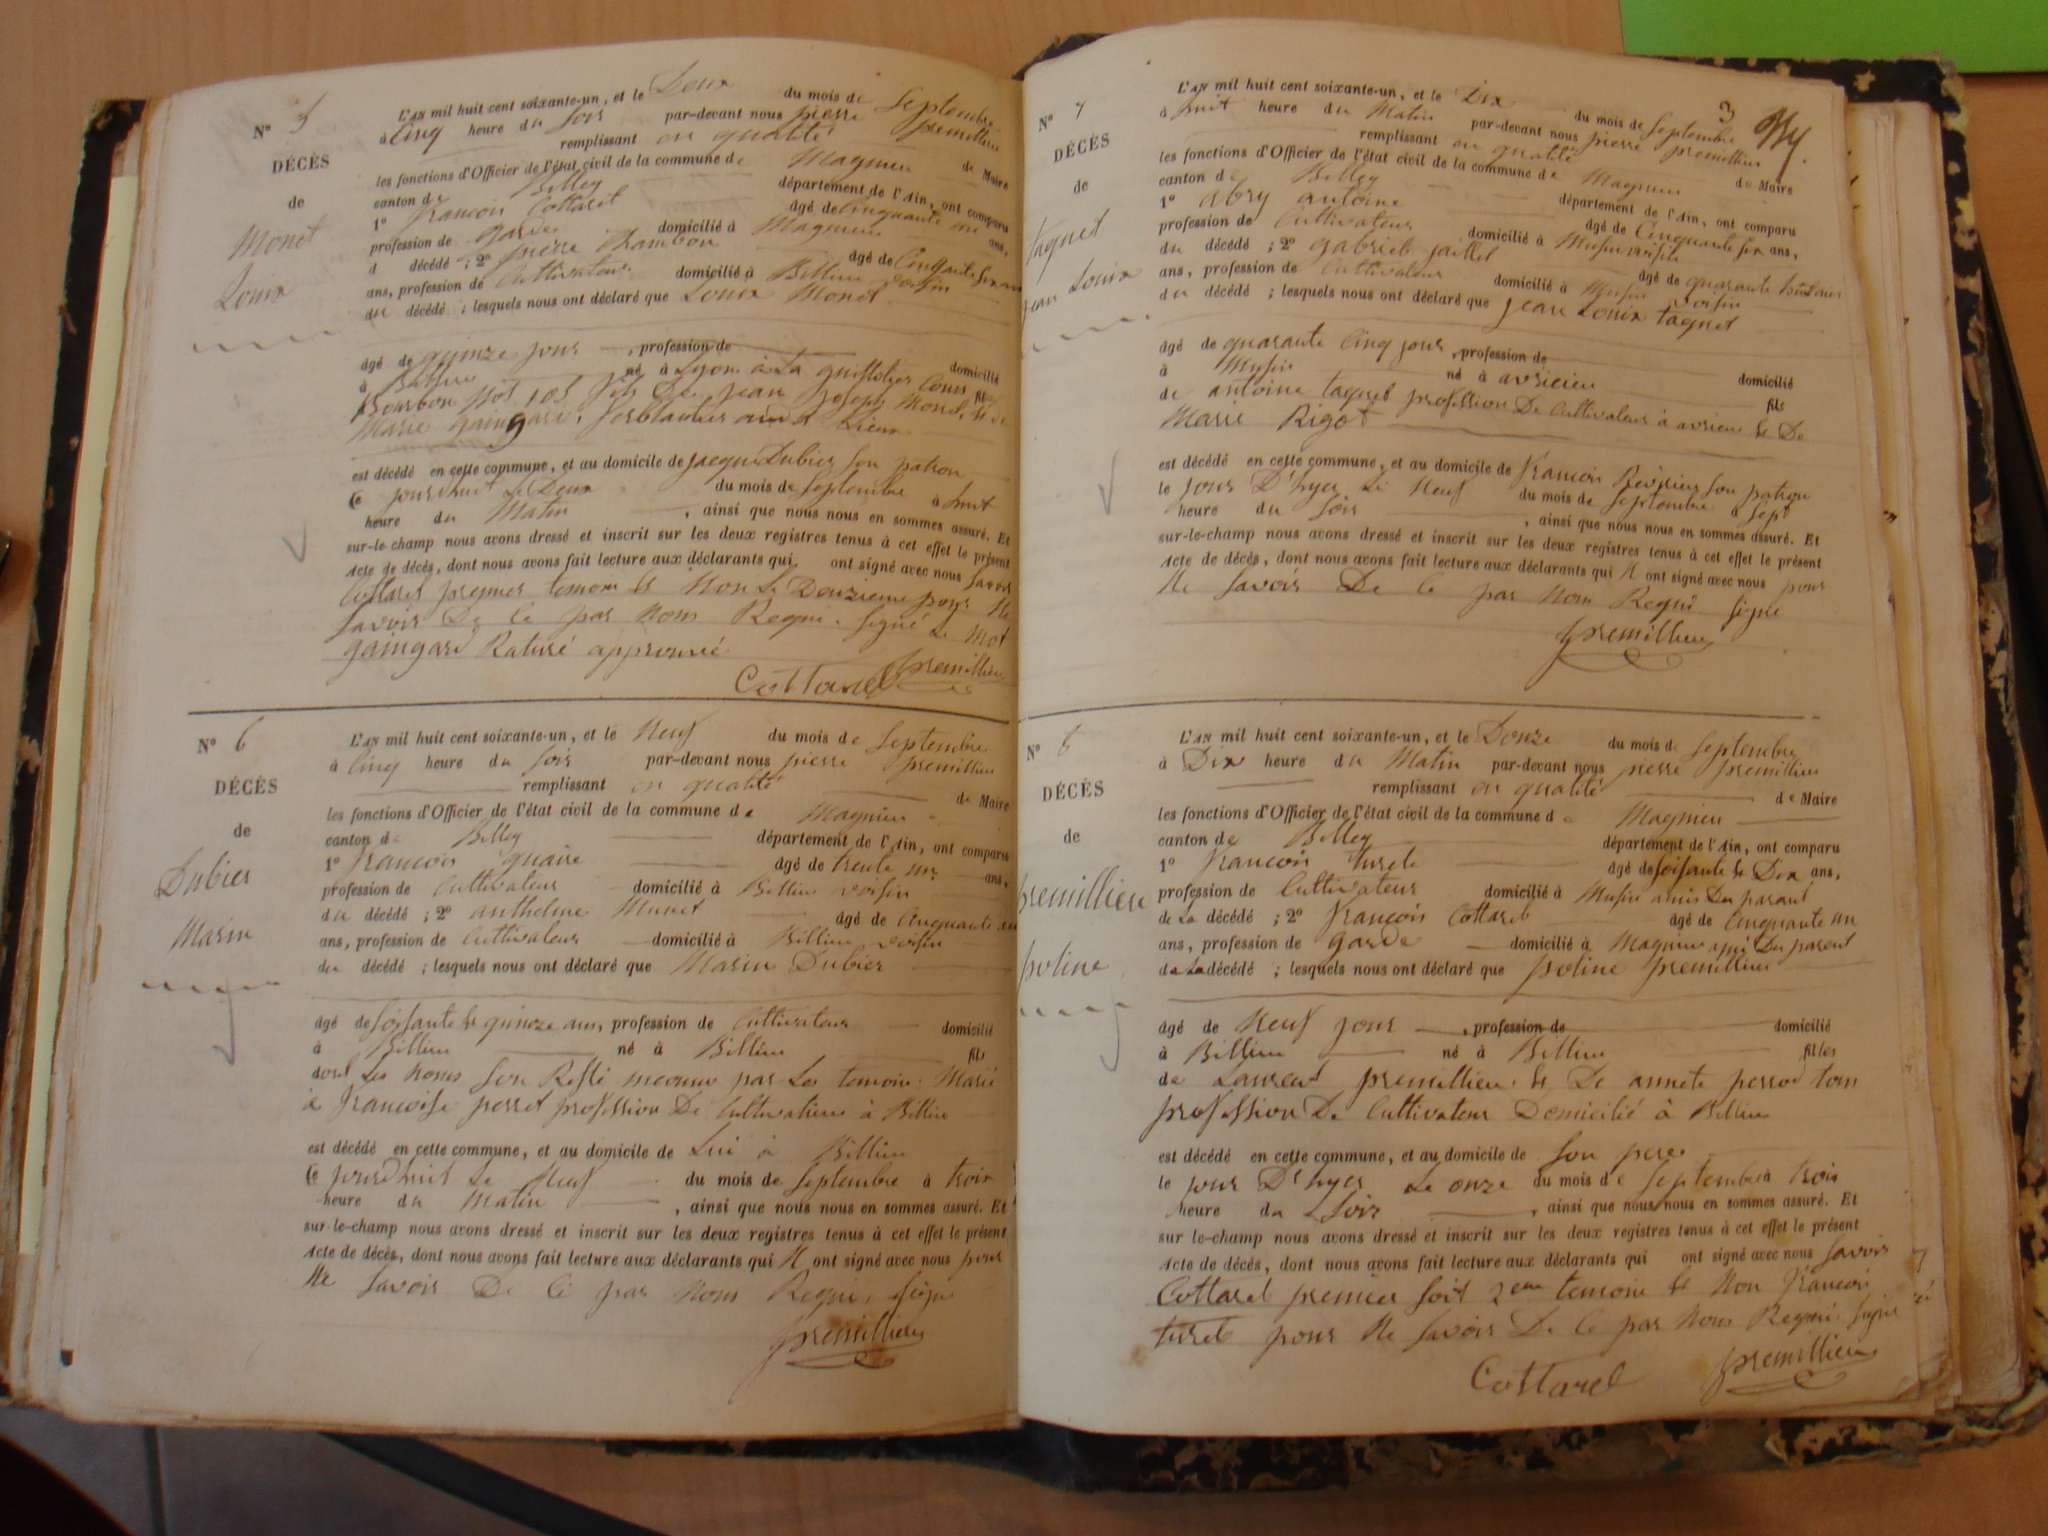 N° 5
DÉCÈS
de
Monet
Louis
L'AN mil huit cent soixante-un, et le Deux du mois de Septembre
à Cinq heure du Soir par-devant nous pierre premillieu
remplissant en qualité de Maire
les fonctions d'Officier de l'état civil de la commune de Magnieu
canton de Belley département de l'Ain, ont comparu
1° francois Cottaret âgé de Cinquante un ans,
profession de garde domicilié à Magnieu
d décédé ; 2° pierre Rambon âgé de Cinqante Six
ans, profession de Cultivateur domicilié à Billieu voisin
du décédé ; lesquels nous ont déclaré que Louis Monet
âgé de quinze jour , profession de domicilié
à Billieu né à Lyon à La Cours fils
Bourbon N° 105 fils De jean joseph Monet, et de
Marie
est décédé en cette commune, et au domicile de jacque Dubier Son patron
Ce jourdhuit Le Deux du mois de Septembre à huit
heure du Matin , ainsi que nous nous en sommes assuré. Et
sur-le-champ nous avons dressé et inscrit sur les deux registres tenus à cet effet le présent
Acte de décès, dont nous avons fait lecture aux déclarants qui ont signé avec nous Savoir
Cottaret premier temoin et Non Le Deuzieme pour Ne
Savoir De Ce par Nous Requi. Signé Le Mot
gaingard Raturé approuvé
Cottarel premillieu
N° 6
DÉCÈS
de
Dubier
Marin
L'AN mil huit cent soixante-un, et le Neuf du mois de Septembre
à Cinq heure du Soir par-devant nous pierre premillieu
remplissant en qualité de Maire
les fonctions d'Officier de l'état civil de la commune de Magnieu
canton de Belley département de l'Ain, ont comparu
1° francois quaire âgé de trente un ans,
profession de Cultivateur domicilié à Billieu voisin
du décédé ; 2° anthelme Munet âgé de Cinquante
ans, profession de Cultivateur domicilié à Billieu voisin
du décédé ; lesquels nous ont déclaré que Marin Dubier
âgé de Soisante et quinze ans, profession de Cultivateur domicilié
à Billieu né à Billieu fils
dont Les Noms Son Resté inconnu par Les temoin. Marié
à francoise perret profession De Cultivatieur à Billieu
est décédé en cette commune, et au domicile de Lui à Billieu
Ce jourdhuit Le Neuf du mois de Septembre à trois
heure du Matin , ainsi que nous nous en sommes assuré. Et
sur-le-champ nous avons dressé et inscrit sur les deux registres tenus à cet effet le présent
Acte de décès, dont nous avons fait lecture aux déclarants qui N ont signé avec nous pour
Ne Savoir De Ce par Nous Requi. Signé
premillieu
3
N° 7
DÉCÈS
de
taquet
jean Louis
L'AN mil huit cent soixante-un, et le Dix du mois de Septembre
à huit heure du Matin par-devant nous pierre premillieu
remplissant en qualité de Maire
les fonctions d'Officier de l'état civil de la commune de Magnieu
canton de Belley département de l'Ain, ont comparu
1° abry antoine âgé de Cinquante six ans,
profession de Cultivateur domicilié à Musin voisin
du décédé ; 2° gabriel jaillet âgé de quarante
ans, profession de Cultivateur domicilié à Musin voisin
du décédé ; lesquels nous ont déclaré que jean Louis taquet
âgé de quarante Cinq jour , profession de domicilié
à Musin né à avricieu fils
de antoine taquet profession De Cultivateur à avricieu et De
Marie Rigot
est décédé en cette commune, et au domicile de francois Révérier Son patron
le jour D'hyer Le Neuf du mois de Septembre à Sept
heure du Soir , ainsi que nous nous en sommes assuré. Et
sur-le-champ nous avons dressé et inscrit sur les deux registres tenus à cet effet le présent
Acte de décès, dont nous avons fait lecture aux déclarants qui N ont signé avec nous pour
Ne Savoir De Ce par Nous Requi Signé
premillieu
N° 8
DÉCÈS
de
premillieu
poline
L'AN mil huit cent soixante-un, et le Douze du mois de Septembre
à Dix heure du Matin par-devant nous pierre premillieu
remplissant en qualité de Maire
les fonctions d'Officier de l'état civil de la commune de Magnieu
canton de Belley département de l'Ain, ont comparu
1° francois turel âgé de Soisante et Dix ans,
profession de Cultivateur domicilié à Musin amis Du parant
de La décédé ; 2° francois Cottaret âgé de Cinquante un
ans, profession de garde domicilié à Magnieu Du parent
de La décédé ; lesquels nous ont déclaré que poline premillieu
âgé de Neuf jour , profession de domicilié
à Billieu né à Billieu filles
de Laurent premillieu et De annete perrod tous
profession De Cultivateur Domicilié à Billieu
est décédé en cette commune, et au domicile de Son pere
le jour D'hyer Le onze du mois de Septembre à trois
heure du Soir , ainsi que nous nous en sommes assuré. Et
sur-le-champ nous avons dressé et inscrit sur les deux registres tenus à cet effet le présent
Acte de décès, dont nous avons fait lecture aux déclarants qui ont signé avec nous Savoir
Cottaret premier Soit 2eme temoin et Non francois
turel pour Ne Savoir De Ce par Nous Requi Signé
Cottarel premillieu